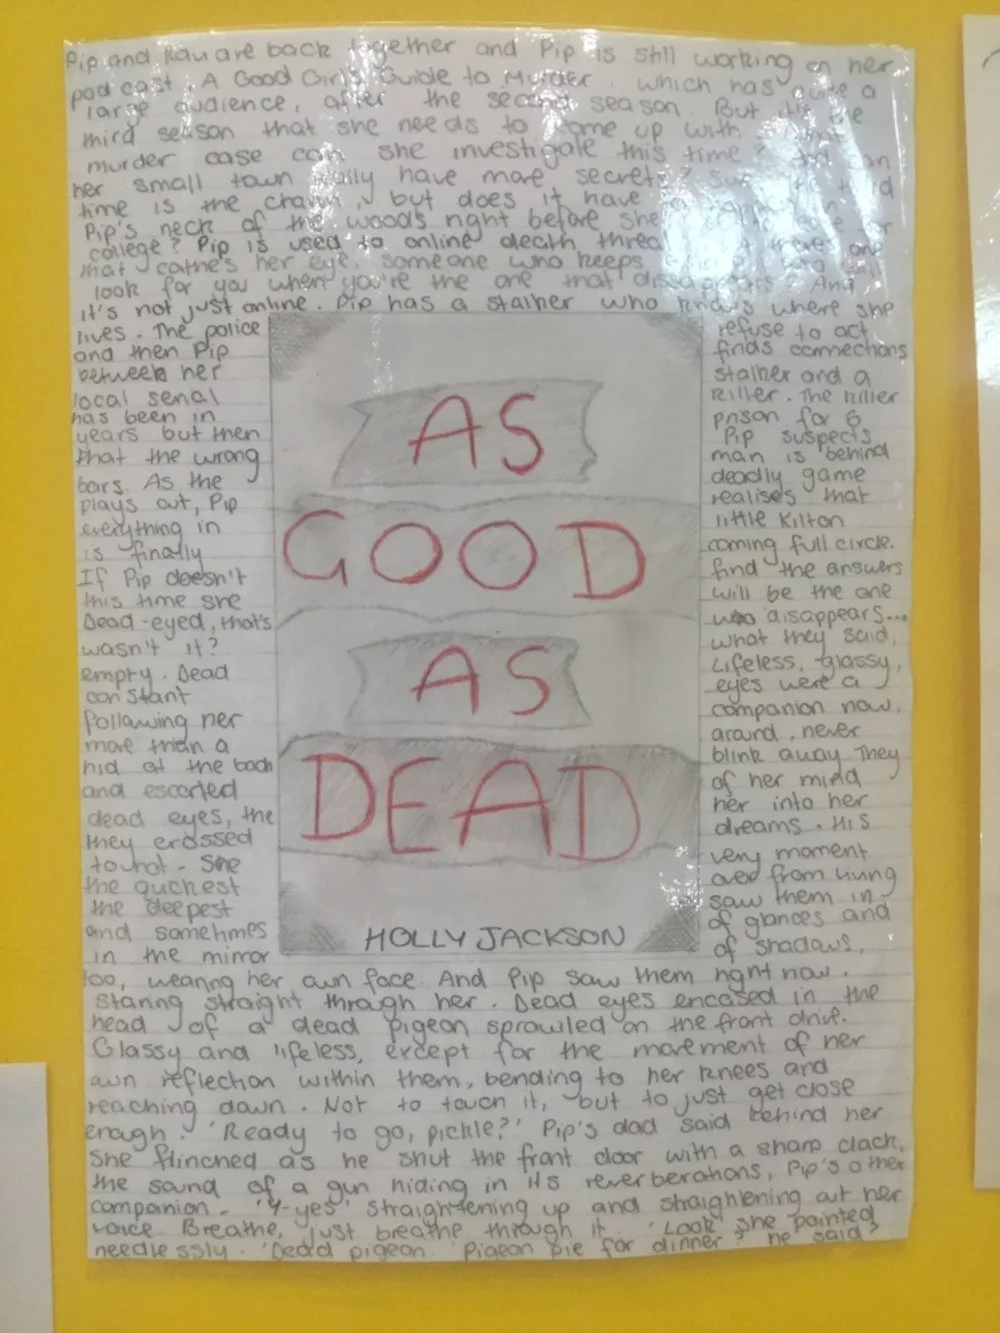 Pip and Rav are back together and Pip is still working on her
pod cast, A Good Girl's Guide to Murder, which has quite a
large audience, after the second season. But it's the
third season that she needs to come up with. What
murder case can she investigate this time? And can
her small town really have more secrets? Sure, third
time is the charm, but does it have to happen in
Pip's neck of the woods right before she leaves for
college? Pip is used to online death threats but there's one
that cathe's her eye, someone who keeps who will
look for you when you're the one that disappears? And
it's not just online. Pip has a stalker who knows where she
lives. The police refuse to act
and then Pip finds connections
between her stalker and a
local serial killer. The killer
has been in prison for 6
years but then Pip suspects
that the wrong man is behind
bars. As the deadly game
plays out, Pip realises that
everything in little Kilton
is finally coming full circle.
If Pip doesn't find the answers
this time she will be the one
who disappears...
Dead-eyed, that's what they said,
wasn't it? Lifeless, glassy,
empty. Dead eyes were a
constant companion now,
following her around, never
more than a blink away. They
hid at the back of her mind
and escorted her into her
dreams. His
dead eyes, the very moment
they crossed over from living
to not. She saw them in
the quckest of glances and
the deepest of shadows,
and sometimes
in the mirror
too, wearing her own face. And Pip saw them right now.
Staring straight through her. Dead eyes encased in the
head of a dead pigeon sprawled on the front drive.
Glassy and lifeless, except for the movement of her
own reflection within them, bending to her knees and
reaching down. Not to touch it, but to just get close
enough. 'Ready to go, pickle?' Pip's dad said behind her
She flinched as he shut the front door with a sharp clack,
the sound of a gun hiding in its reverberations, Pip's other
companion. 'Y-yes' straightening up and straightening out her
voice. Breathe, just breathe through it. 'Look' she pointed
needlessly. 'Dead pigeon. 'Pigeon pie for dinner?' he said?
AS
GOOD
AS
DEAD
HOLLY JACKSON